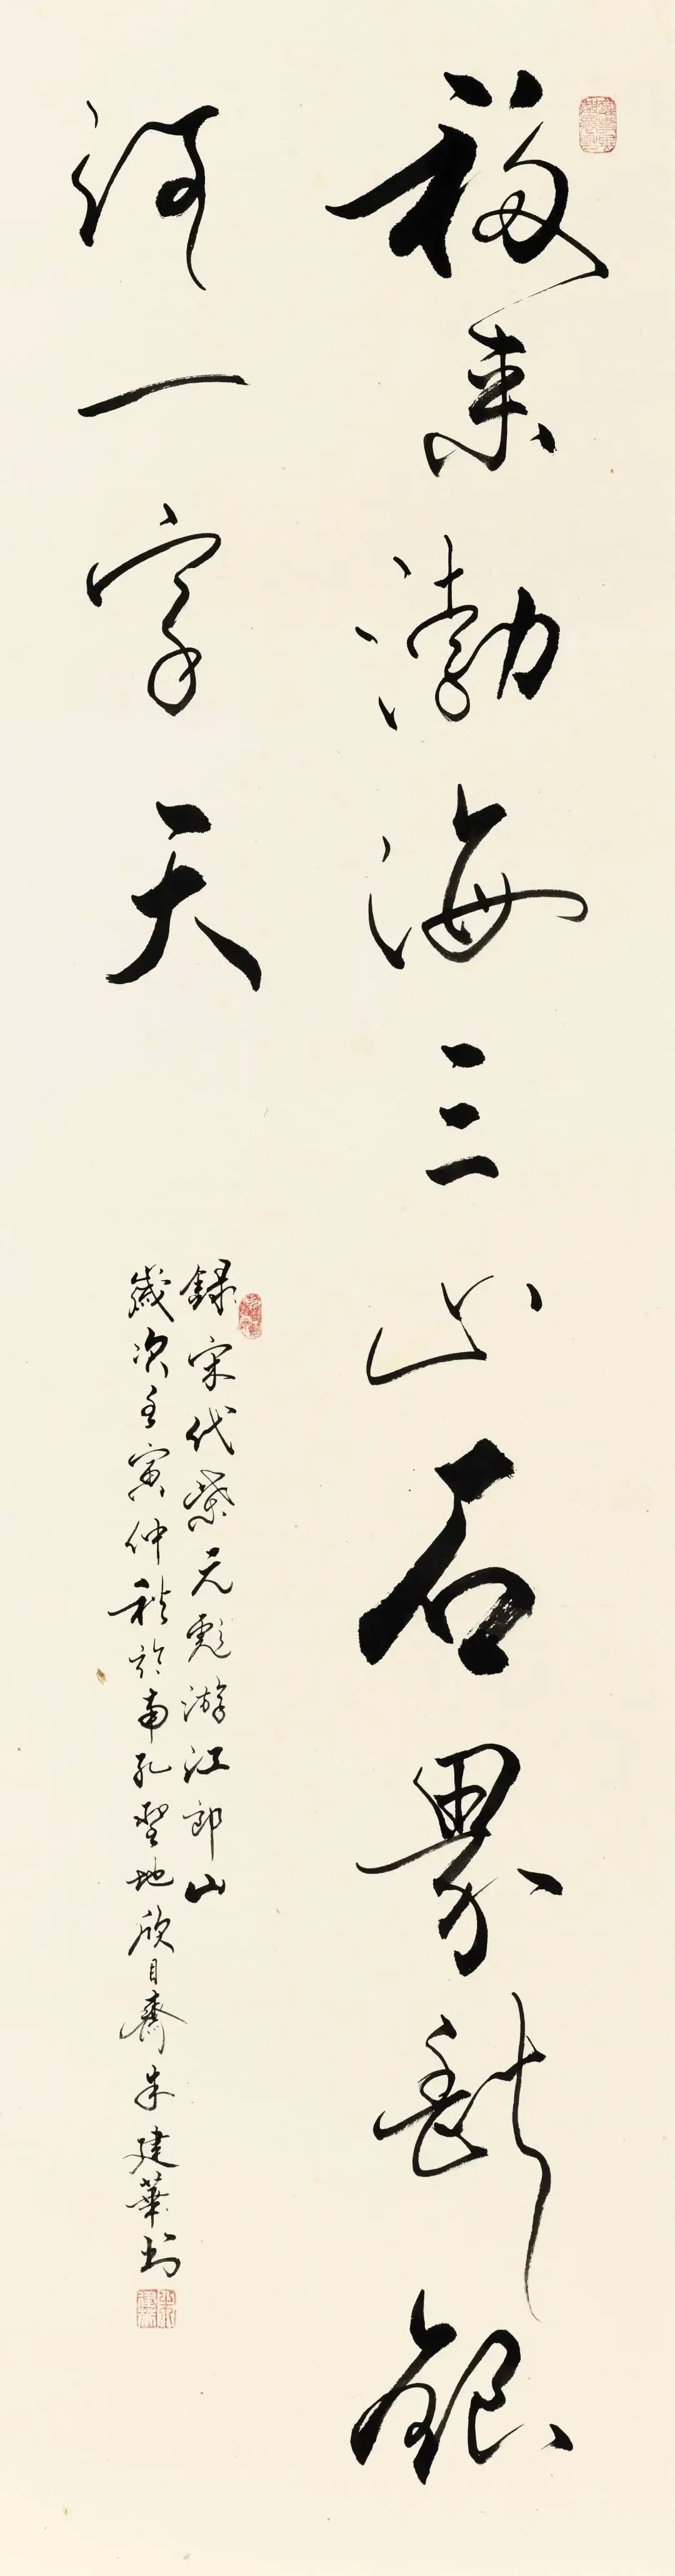 移来渤海三山石界断银
河一字天
録宋代柴元彪游江郎山
歲次壬寅仲秋於南孔聖地欣目齋朱建華书